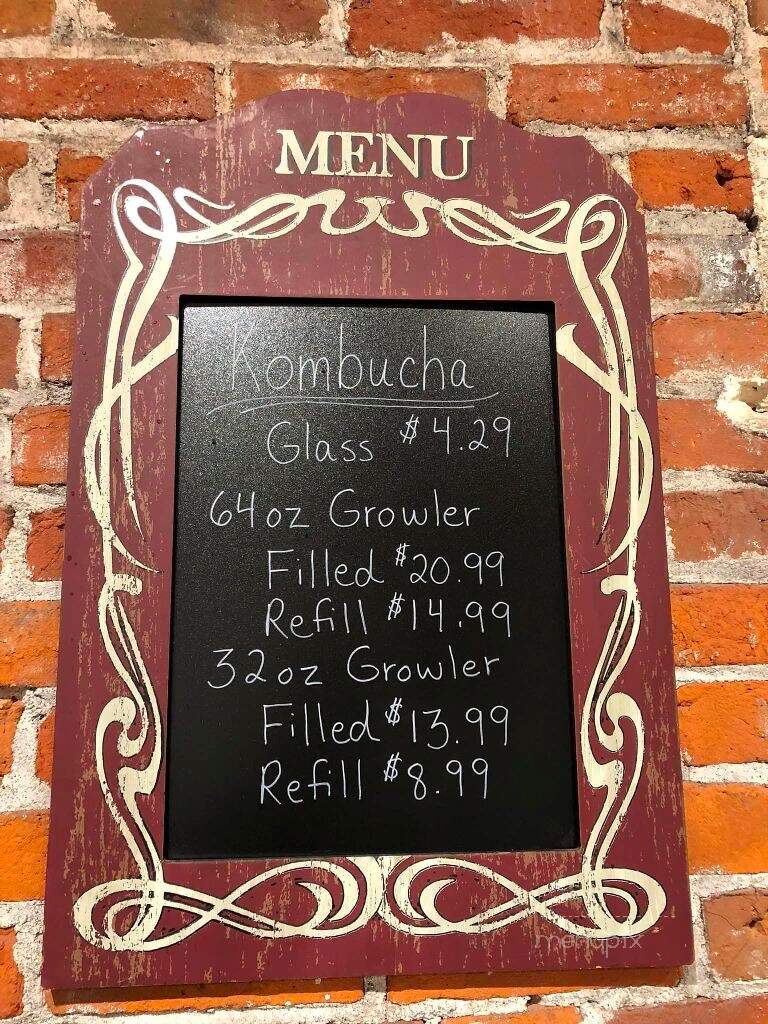 MENU
Kombucha
Glass $4.29
64oz Growler
Filled $20.99
Refill $14.99
32oz Growler
Filled $13.99
Refill $8.99
menupix